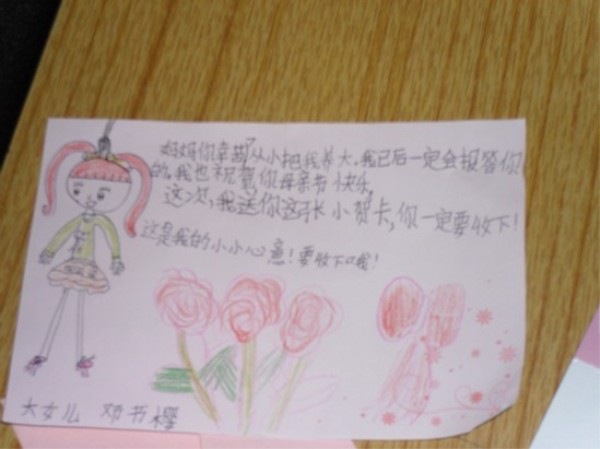 妈妈你辛苦了从小把我养大,我已后一定会报答你
的,我也祝你母亲节快乐,
这次,我送你这张小贺卡,你一定要收下!
这是我的小小心意!要收下哦!
大女儿 邓书樱